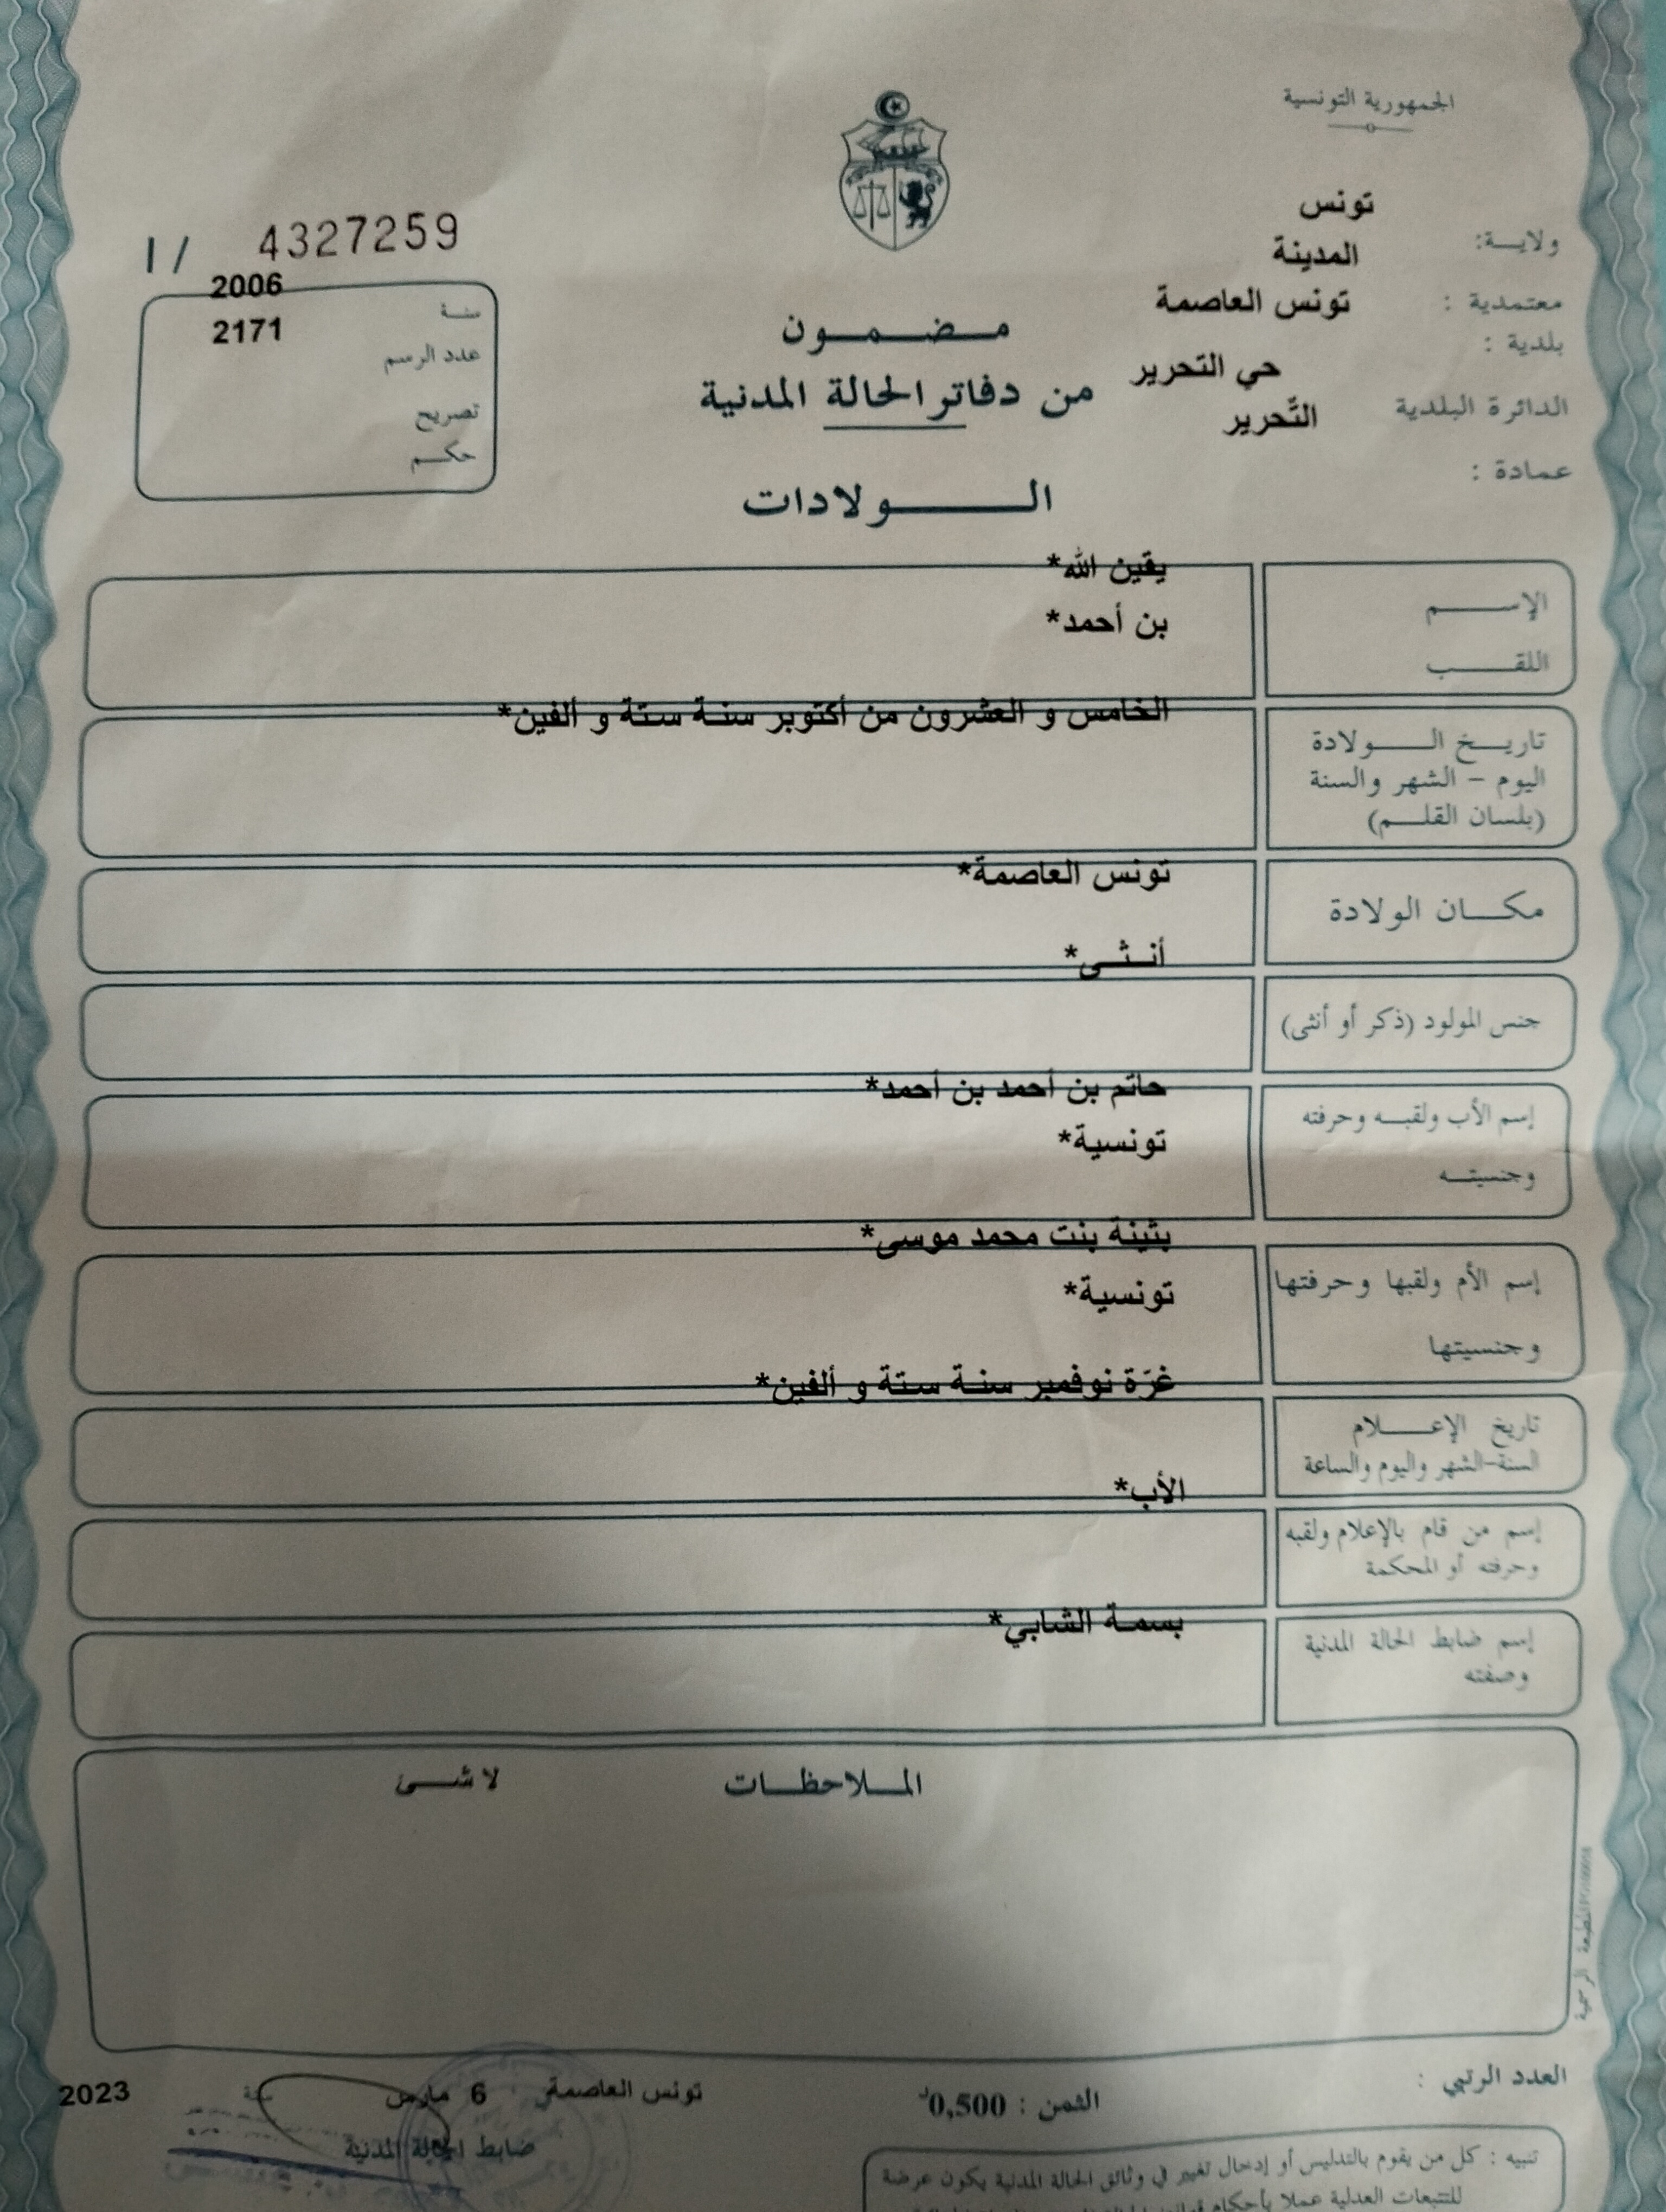 الجمهورية التونسية
تونس
ولايــة:
المدينة
معتمدية :
تونس العاصمة
بلدية :
حي التحرير
الدائرة البلدية
التّحرير
عمادة :
I / 4327259
2006
سنـة
2171
عدد الرسم
تصريح
حكـــم
مـــضـــمـــون
من دفاتر الحالة المدنية
الـــــولادات
يقين الله*
الإســـــم
بن أحمد*
اللقـــــب
الخامس و العشرون من أكتوبر سنة ستة و ألفين*
تاريـــخ الـــــولادة
اليوم - الشهر والسنة
(بلسان القلـــم)
تونس العاصمة*
مكـــان الولادة
أنـثـى*
جنس المولود (ذكر أو أنثى)
حاتم بن أحمد بن أحمد*
إسم الأب ولقبــه وحرفته
تونسية*
وجنسيتــه
بثينة بنت محمد موسى*
إسم الأم ولقبها وحرفتها
تونسية*
وجنسيتها
غرّة نوفمبر سنة ستة و ألفين*
تاريخ الإعـــــلام
السنة-الشهر واليوم والساعة
الأب*
إسم من قام بالإعلام ولقبه
وحرفته أو المحكمة
بسمة الشابي*
إسم ضابط الحالة المدنية
وصفته
المـــلاحظـــات
لا شـــئ
العدد الرتبي :
الثمن : 0,500د
تونس العاصمة 6 مارس سنة 2023
ضابط الحالة المدنية
تنبيه : كل من يقوم بالتدليس أو إدخال تغيير في وثائق الحالة المدنية يكون عرضة
للتتبعات العدلية عملا بأحكام